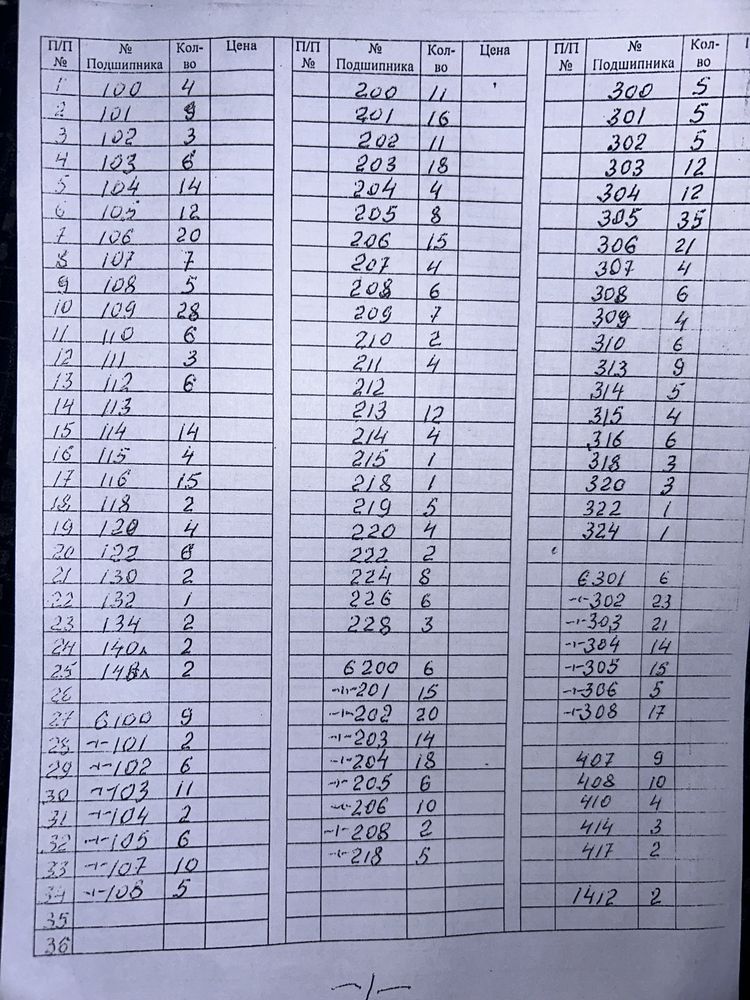 П/П № | № Подшипника | Кол-во | Цена | П/П № | № Подшипника | Кол-во | Цена | П/П № | № Подшипника | Кол-во
1 | 100 | 4 | | | 200 | 11 | | | 300 | 5
2 | 101 | 9 | | | 201 | 16 | | | 301 | 5
3 | 102 | 3 | | | 202 | 11 | | | 302 | 5
4 | 103 | 6 | | | 203 | 18 | | | 303 | 12
5 | 104 | 14 | | | 204 | 4 | | | 304 | 12
6 | 105 | 12 | | | 205 | 8 | | | 305 | 35
7 | 106 | 20 | | | 206 | 15 | | | 306 | 21
8 | 107 | 7 | | | 207 | 4 | | | 307 | 4
9 | 108 | 5 | | | 208 | 6 | | | 308 | 6
10 | 109 | 28 | | | 209 | 7 | | | 309 | 4
11 | 110 | 6 | | | 210 | 2 | | | 310 | 6
12 | 111 | 3 | | | 211 | 4 | | | 313 | 9
13 | 112 | 6 | | | 212 | | | | 314 | 5
14 | 113 | | | | 213 | 12 | | | 315 | 4
15 | 114 | 14 | | | 214 | 4 | | | 316 | 6
16 | 115 | 4 | | | 215 | 1 | | | 318 | 3
17 | 116 | 15 | | | 218 | 1 | | | 320 | 3
18 | 118 | 2 | | | 219 | 5 | | | 322 | 1
19 | 120 | 4 | | | 220 | 4 | | | 324 | 1
20 | 122 | 6 | | | 222 | 2 | | | |
21 | 130 | 2 | | | 224 | 8 | | | 6301 | 6
22 | 132 | 1 | | | 226 | 6 | | | -"-302 | 23
23 | 134 | 2 | | | 228 | 3 | | | -"-303 | 21
24 | 140л | 2 | | | | | | | -"-304 | 14
25 | 148л | 2 | | | 6200 | 6 | | | -"-305 | 15
26 | | | | | -"-201 | 15 | | | -"-306 | 5
27 | 6100 | 9 | | | -"-202 | 20 | | | -"-308 | 17
28 | -"-101 | 2 | | | -"-203 | 14 | | | |
29 | -"-102 | 6 | | | -"-204 | 18 | | | 407 | 9
30 | -"-103 | 11 | | | -"-205 | 6 | | | 408 | 10
31 | -"-104 | 2 | | | -"-206 | 10 | | | 410 | 4
32 | -"-105 | 6 | | | -"-208 | 2 | | | 414 | 3
33 | -"-107 | 10 | | | -"-218 | 5 | | | 417 | 2
34 | -"-108 | 5 | | | | | | | 1412 | 2
35
36
-1-